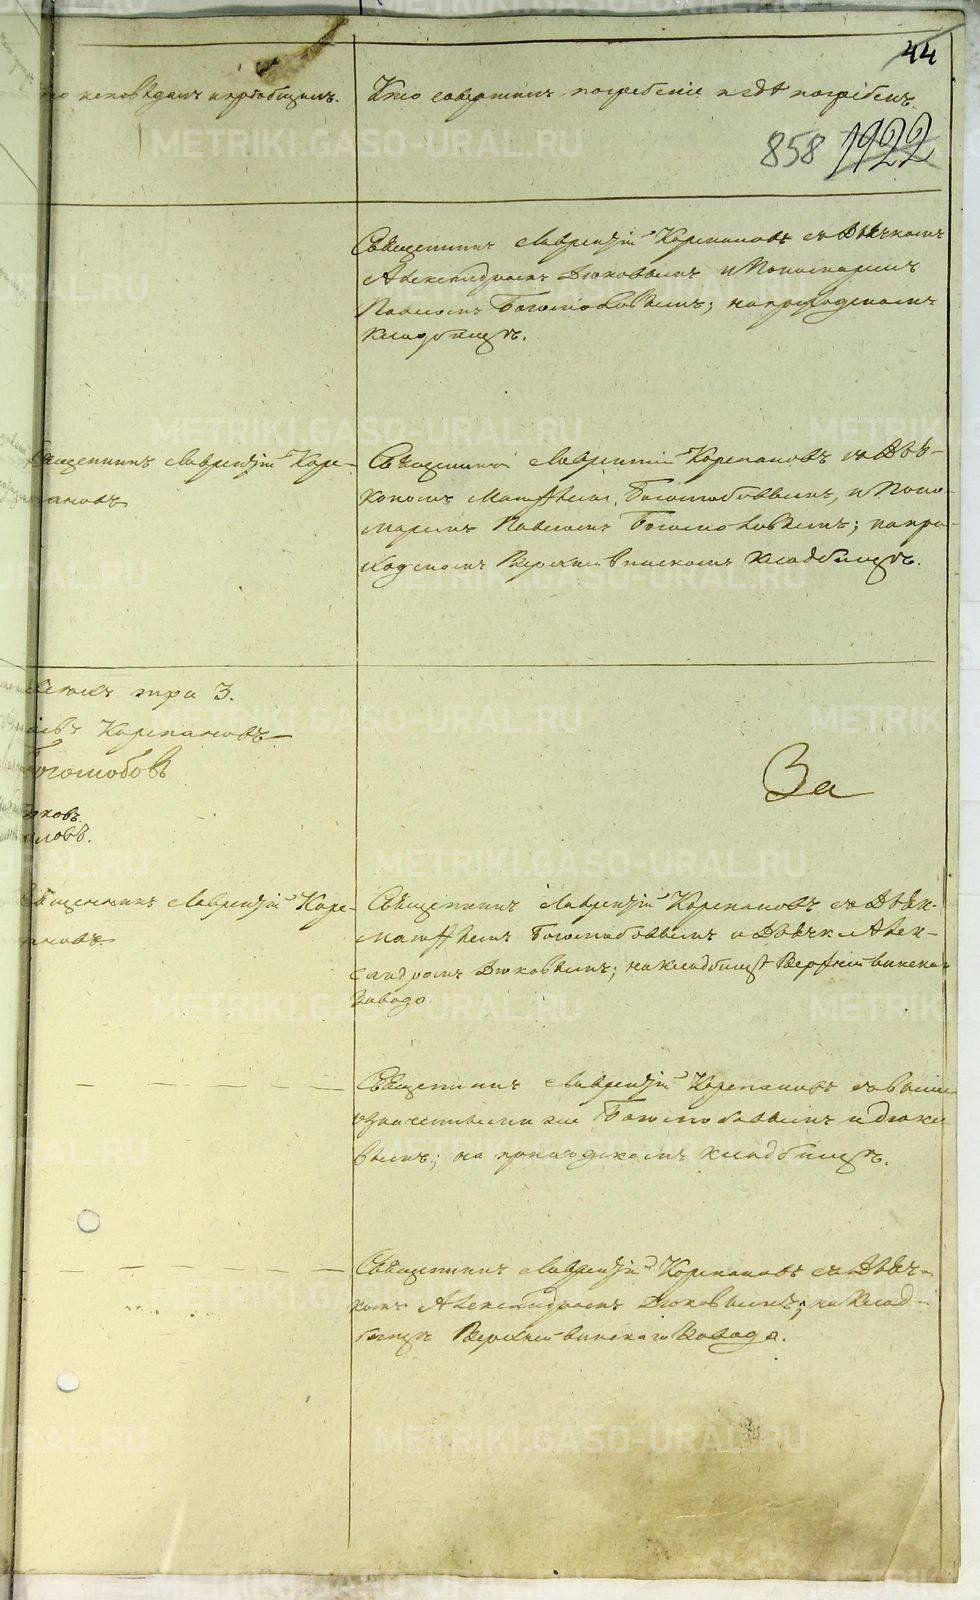 44
исповѣдалъ и пріобщилъ.
Кто совершилъ погребеніе и гдѣ погребенъ.
858 1922
Священникъ Лаврентій Карепановъ съ Дьячкомъ
Александромъ Дюковымъ и Пономаремъ
Павломъ Боголюбовымъ; на приходскомъ
кладбищѣ.
Священникъ Лаврентій Каре-
пановъ
Священникъ Лаврентій Карепановъ съ Дья-
кономъ Матфѣемъ Боголюбовымъ, и Поно-
маремъ Павломъ Боголюбовымъ; на при-
ходскомъ Верхнейвинскомъ кладбищѣ.
три 3.
Карепановъ
Боголюбовъ
За
Священникъ Лаврентій Каре-
пановъ
Священникъ Лаврентій Карепановъ съ Дьяк.
Матфѣемъ Боголюбовымъ и Дьячк. Алек-
сандромъ Дюковымъ; на кладбищѣ Верхнейвинскаго
завода.
Священникъ Лаврентій Карепановъ съ выше
означенными Боголюбовымъ и Дюко
вымъ; на приходскомъ кладбищѣ.
Священникъ Лаврентій Карепановъ съ Дьяч-
комъ Александромъ Дюковымъ; на клад-
бищѣ Верхнейвинскаго завода.
METRIKI.GASO-URAL.RU